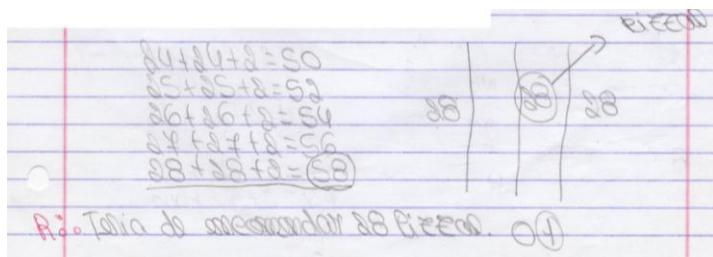 pizzas
24+24+2=50
25+25+2=52
26+26+2=54
27+27+2=56
28+28+2=58
28 28 28
R:. Teria de encomendar 28 pizzas. 0 1